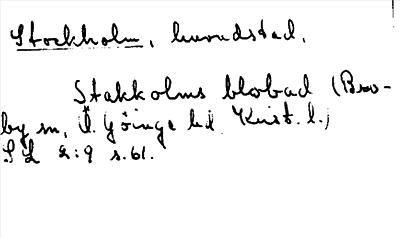 Stockholm, huvudstad.
Stakkolms blobad (Bro-
by sn, Ö. Göinge hd Krist. l.)
SL 2:9 s. 61.